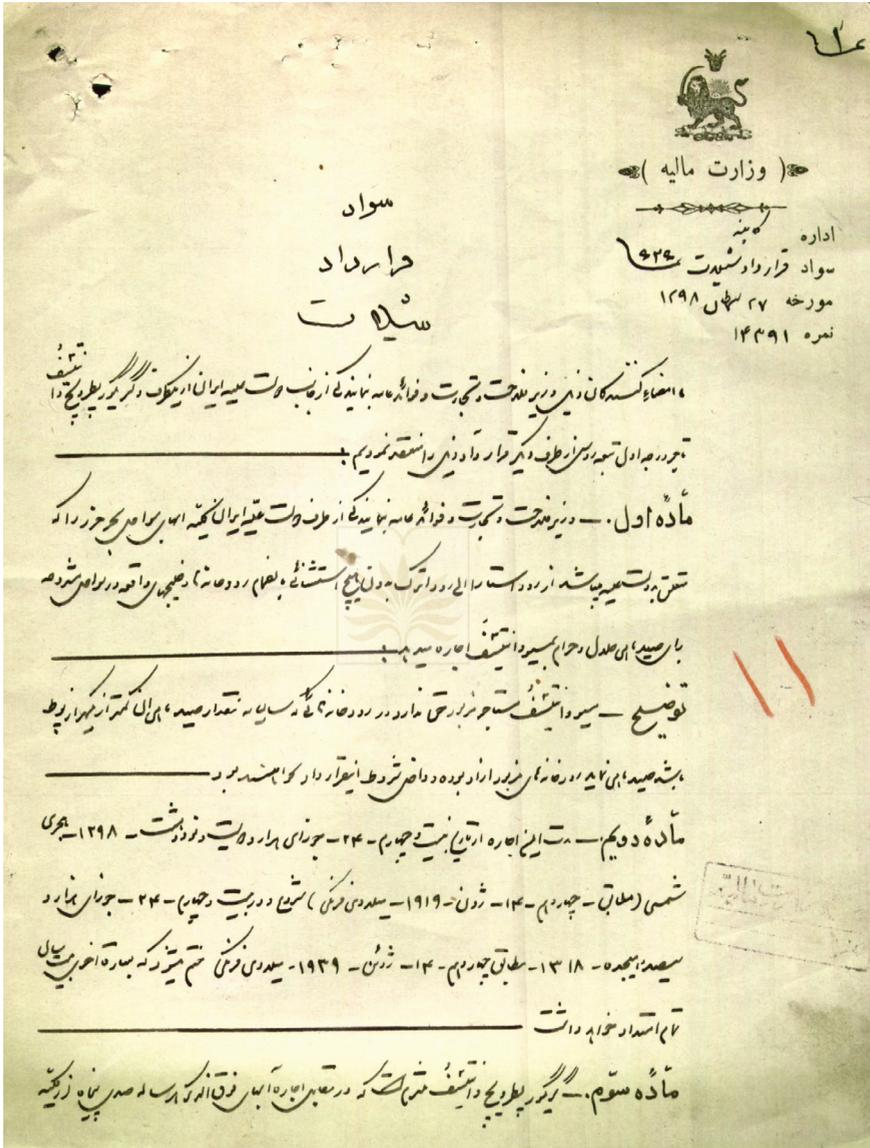 وزارت مالیه
اداره کابینه
سواد قرارداد شیلات
مورخه ۲۷ سرطان ۱۲۹۸
نمره ۱۴۳۹۱
سواد
قرارداد
شیلات
امضاء کنندگان ذیل وزیر فلاحت و تجارت و فوائد عامه بنمایندگی از جانب دولت علیه ایران از یکطرف و گریگور پطرویچ وا
نیتسُف
تاجر درجه اول تبعه روس از طرف دیگر قرارداد ذیل را منعقد نمودیم
مادّه اول. — وزیر فلاحت و تجارت و فوائد عامه بنمایندگی از طرف دولت علیّه ایران کلیّه آبهای سواحل بحر خزر را که
متعلق بدولت علیه میباشد از رود استارا الی رود اترک بدون هیچ استثنائی بانضمام رودخانه‌ها و خلیجهای واقعه در سواحل مشروحه
برای صید ماهی حلال و حرام بمسیو وانیتسُف اجاره میدهد
توضیح — مسیو وانیتسُف مستاجر مزبور حقی ندارد در رودخانه‌هائی که سالیانه مقدار صید ماهی آن کمتر از یکهزار پوط
باشد صید ماهی نماید رودخانه‌های مزبور آزاد بوده و داخل شروط این قرارداد نخواهند بود
مادّه دویم — مدت این اجاره از تاریخ بیست و چهارم - ۲۴ - جوزای هزار و دویست و نود و هشت - ۱۲۹۸ - هجری
شمسی (مطابق - چهاردهم - ۱۴ - ژون - ۱۹۱۹ - میلادی فرنگی) شروع و در بیست و چهارم - ۲۴ - جوزای هزار و
سیصد و هیجده - ۱۳۱۸ - مطابق چهاردهم - ۱۴ - ژون - ۱۹۳۹ - میلادی فرنگی ختم میشود که بعبارة اخری بیست سال
تمام امتداد خواهد داشت
مادّه سوّم. — گریگور پطرویچ وانیتسُف ملتزم است که در مقابل اجاره آبهای فوق الذکر هر ساله صدی پنجاه از کلیّه